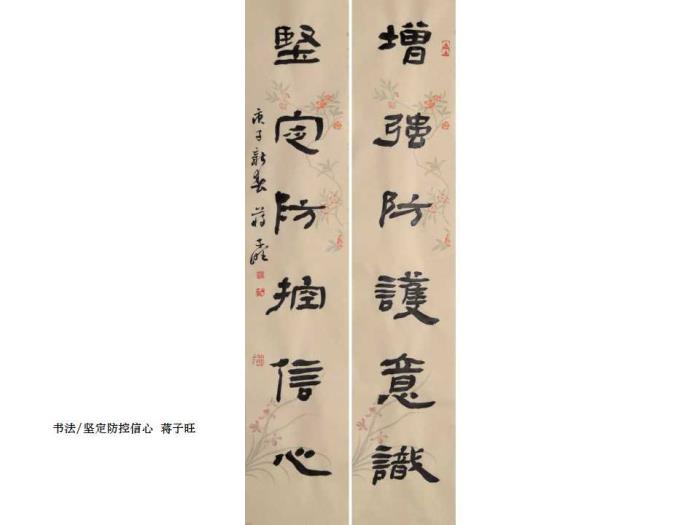 增强防護意識
堅定防控信心
庚子新春 蒋子旺
书法/坚定防控信心 蒋子旺